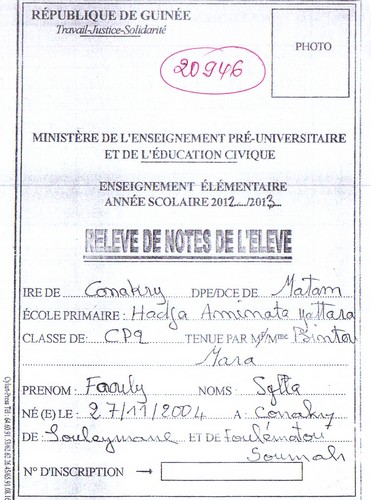 RÉPUBLIQUE DE GUINÉE
Travail-Justice-Solidarité
PHOTO
20946
MINISTÈRE DE L'ENSEIGNEMENT PRÉ-UNIVERSITAIRE
ET DE L'ÉDUCATION CIVIQUE
ENSEIGNEMENT ÉLÉMENTAIRE
ANNÉE SCOLAIRE 2012..../2013....
RELEVE DE NOTES DE L'ELEVE
IRE DE Conakry DPE/DCE DE Matam
ÉCOLE PRIMAIRE : Hadja Aminata Yattara
CLASSE DE: TENUE PAR Mr/Mme Bintou
Mara
PRENOM : NOMS :
NÉ (E) LE : 27/11/2004 A : Conakry
DE Souleymane ET DE Foulématou
Soumah
N° D'INSCRIPTION →